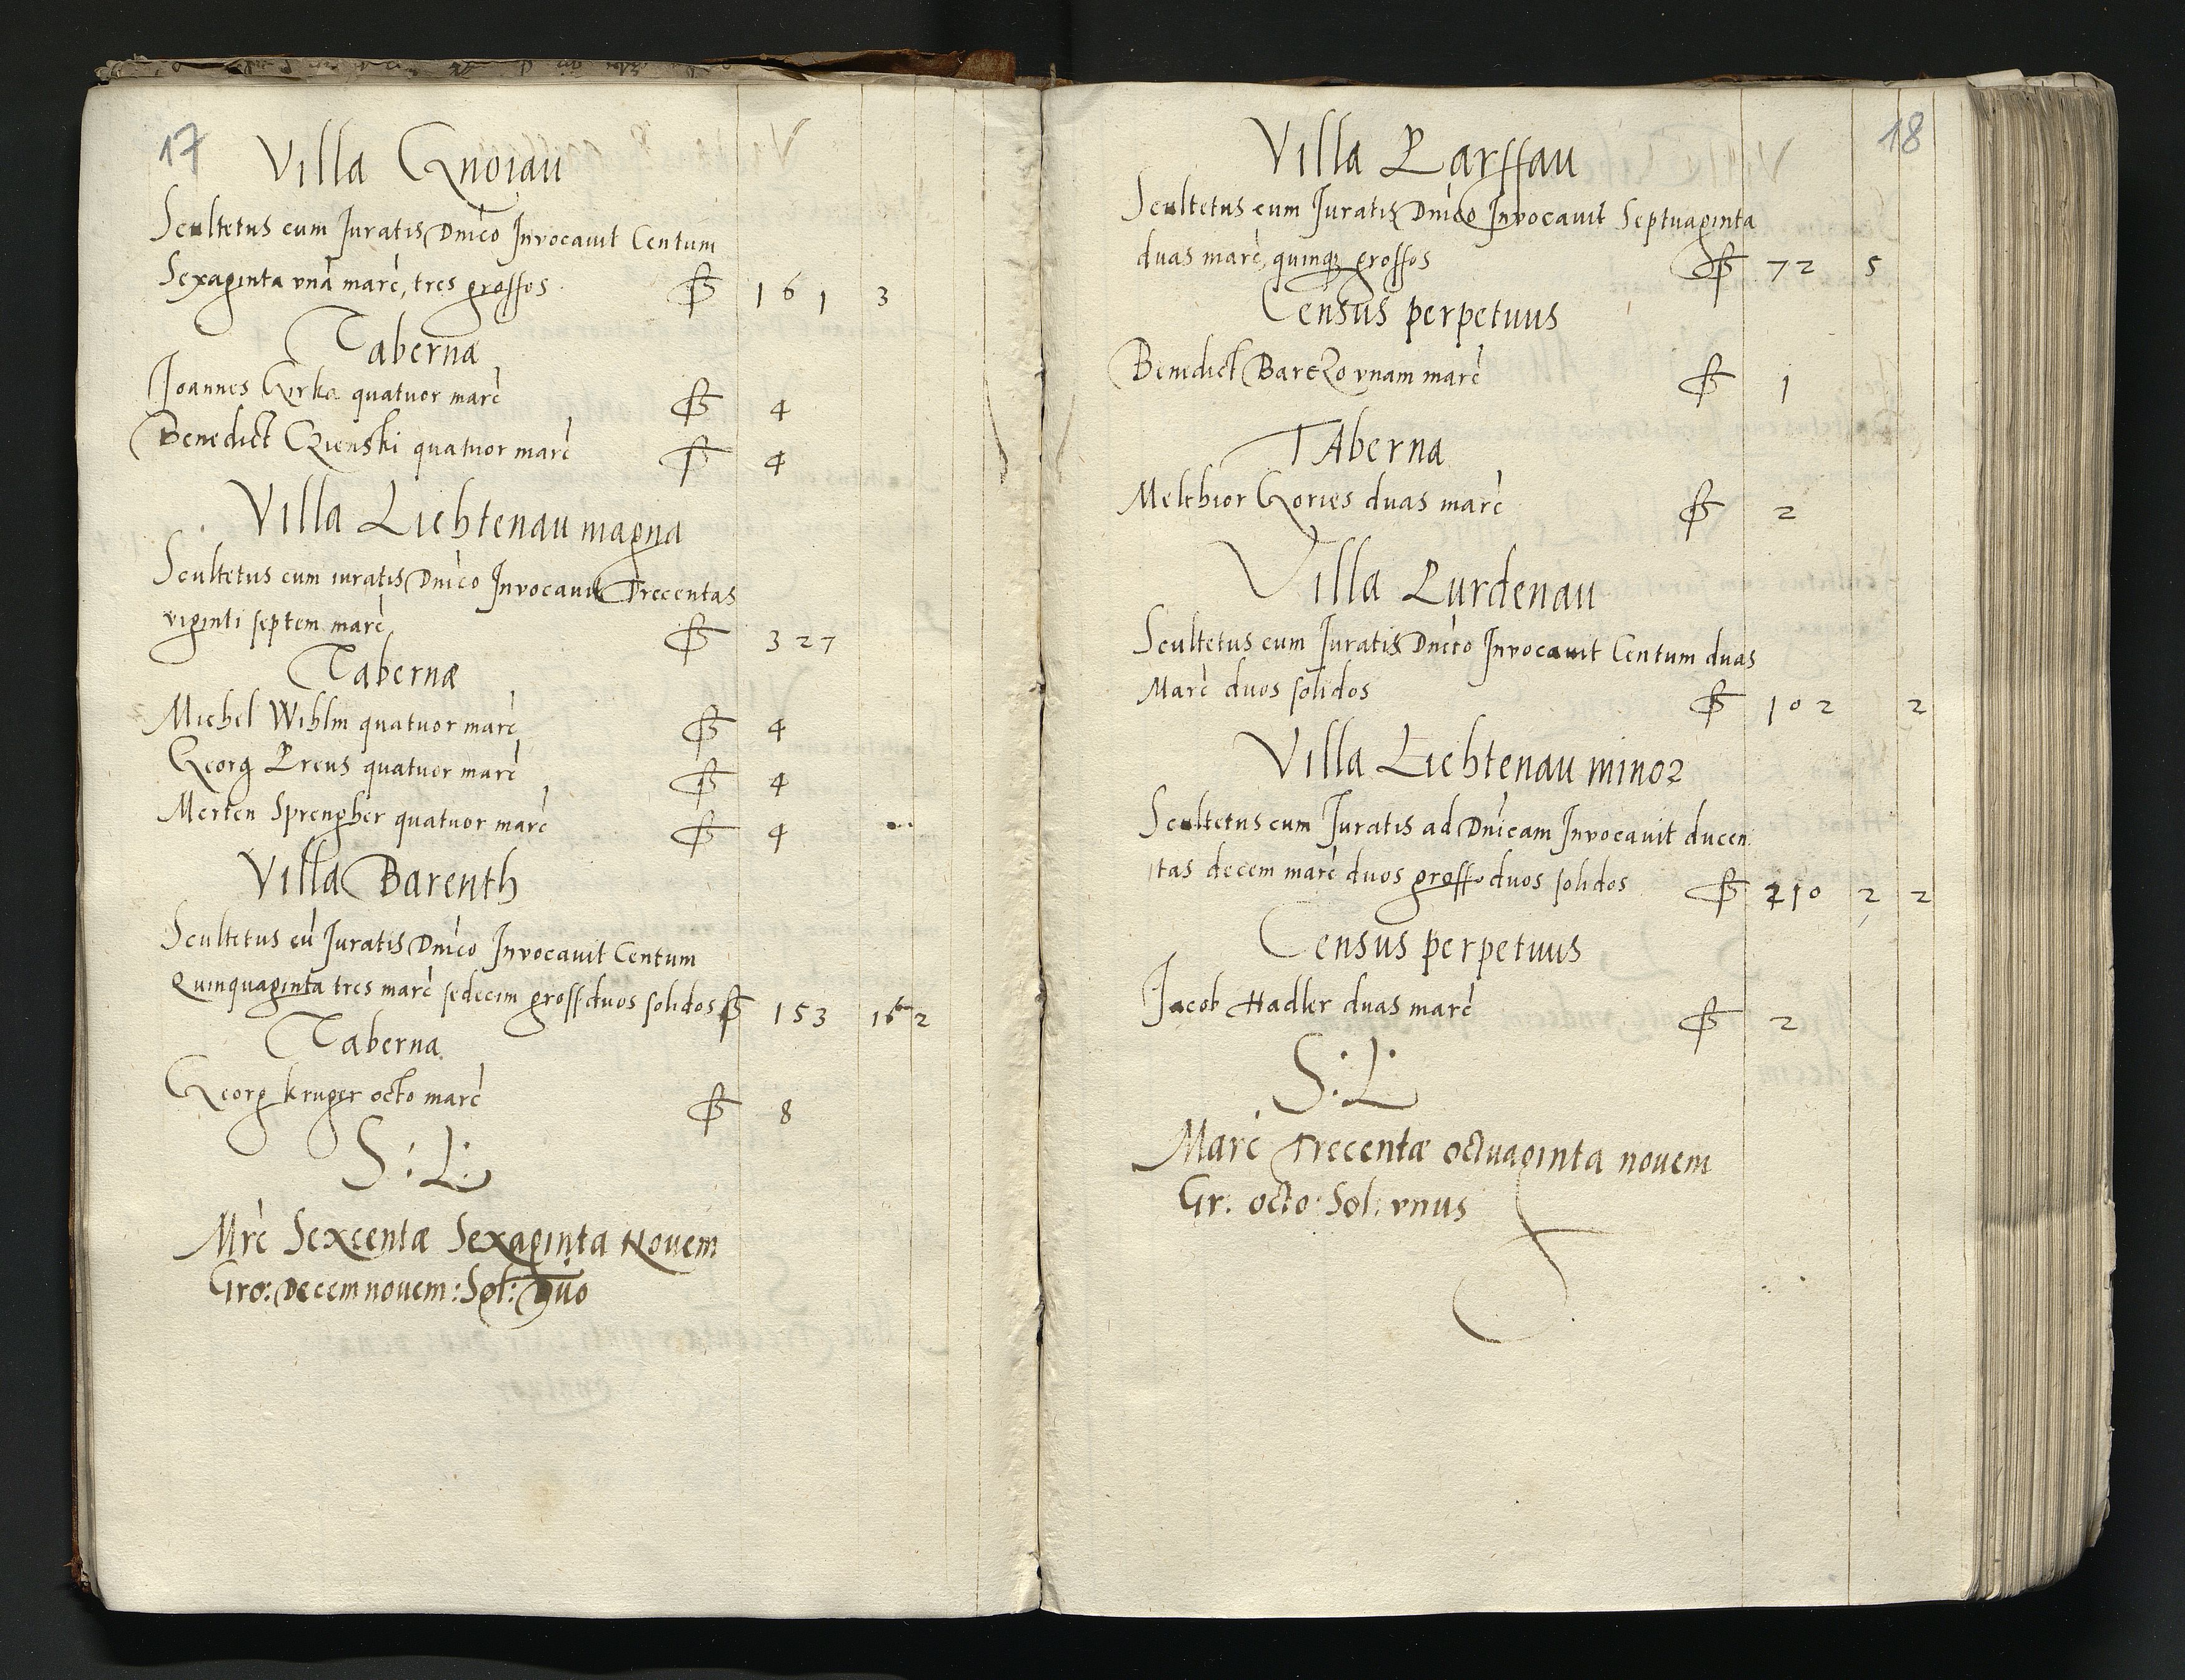 17
Villa Gnoiau
Scultetus cum Juratis Dnico Invocavit Centum
Sexaginta vnā marc̀, tres grossos ₰ 161 3
Tabernæ
Joannes Girka quatuor marc̀ ₰ 4
Benedict Czienski quatuor marc̀ ₰ 4
Villa Lichtenau magna
Scultetus cum iuratis Dnico Invocauit Trecentas
viginti septem marc̀ ₰ 327
Tabernæ
Michel Wihlm quatuor marc̀ ₰ 4
Georg Preus quatuor marc̀ ₰ 4
Merten Sprengher quatuor marc̀ ₰ 4
Villa Barenth
Scultetus cū Juratis Dnico Invocavit Centum
Quinquaginta tres marc̀ sedecim gross duos solidos ₰ 153 16 2
Taberna
Georg kruger octo marc̀ ₰ 8
S: L:
Mrc̀ Sexcentæ Sexaginta Nouem
Gro: Decem novem: Sol: Duo
18
Villa Parssau
Scultetus cum Juratis Dnico Invocauit Septuaginta
duas marc̀, quinqꝫ grossos ₰ 72 5
Census perpetuus
Benedict Barczo vnam marc̀ ₰ 1
TAberna
Melchior Gories duas marc̀ ₰ 2
Villa Purdenau
Scultetus cum Juratis Dnico Invocauit Centum duas
Marc̀ duos solidos ₰ 102 2
Villa Lichtenau minor
Scultetus cum Juratis ad Dnicam Invocavit ducen
tas decem marc̀ duos grosso duos solidos ₰ 210 2 2
Census perpetuus
Jacob Hadler duas marc̀ ₰ 2
S: L:
Marc̀ Trecentæ octuaginta nouem
Gr: octo: Sol: vnus